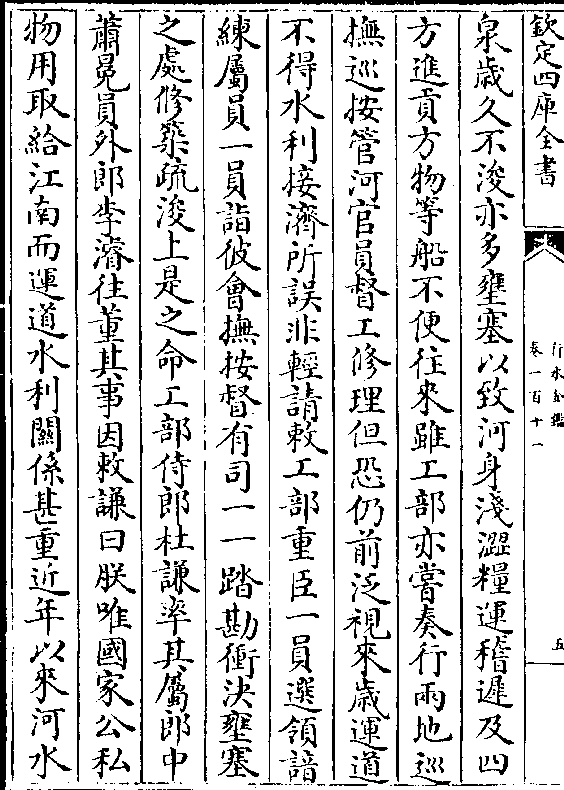 欽定四庫全書
行水金鑑
卷一百十一
五
泉歲久不浚亦多壅塞以致河身淺澀糧運稽遲及四
方進貢方物等船不便往來雖工部亦嘗奏行兩地巡
撫巡按管河官員督工修理但恐仍前泛視來歲運道
不得水利接濟所誤非輕請敕工部重臣一員選領諳
練屬員一員詣彼會撫按督有司一一踏勘衝決壅塞
之處修築疏浚上是之命工部侍郎杜謙率其屬郎中
蕭冕員外郎李濬往董其事因敕謙曰朕唯國家公私
物用取給江南而運道水利關係甚重近年以來河水